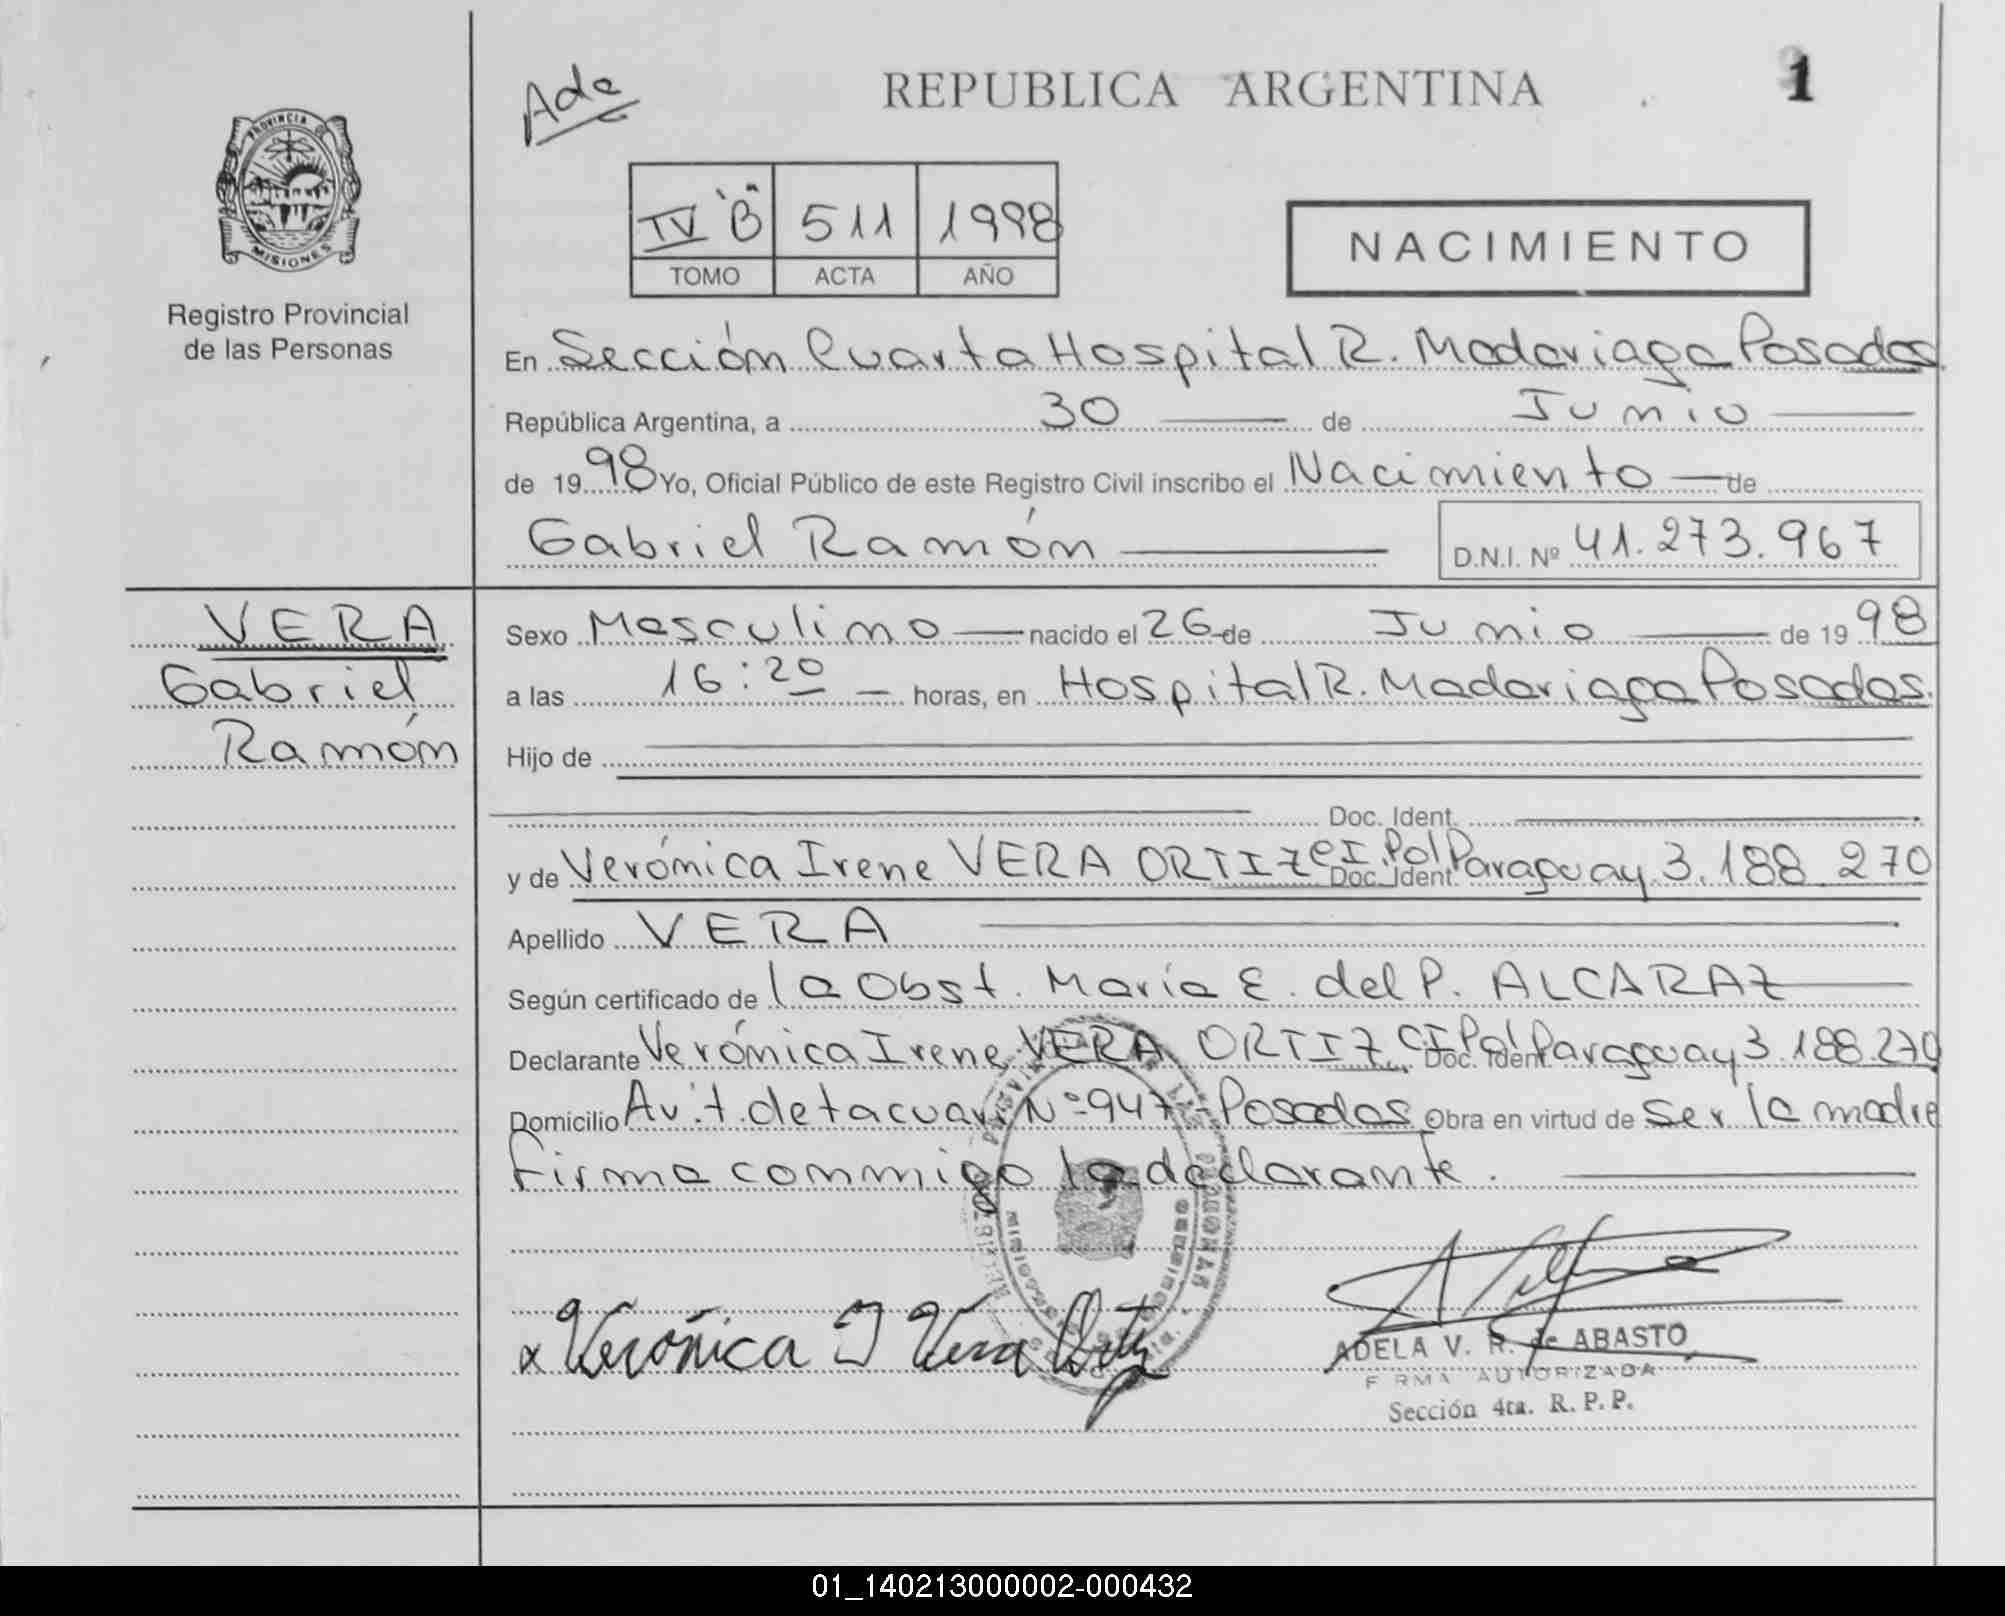 Ade
REPUBLICA ARGENTINA
1
PROVINCIA DE
MISIONES
Registro Provincial
de las Personas
IV "B" 511 1998
TOMO ACTA AÑO
NACIMIENTO
En Sección Cuarta Hospital R. Madariaga Posadas
República Argentina, a 30 de Junio
de 1998 Yo, Oficial Público de este Registro Civil inscribo el Nacimiento de
Gabriel Ramón D.N.I. Nº 41.273.967
VERA
Gabriel
Ramón
Sexo Masculino nacido el 26 de Junio de 1998
a las 16:20 horas, en Hospital R. Madariaga Posadas.
Hijo de
Doc. Ident.
y de Verónica Irene VERA ORTIZ Doc. Ident. CI. Pol Paraguay 3.188 270
Apellido VERA
Según certificado de la Obst. María E. del P. ALCARAZ
Declarante Verónica Irene VERA ORTIZ Doc. Ident. CI Pol Paraguay 3.188.270
Domicilio Av. t. de tacuary Nº 947 - Posadas Obra en virtud de ser la madre
Firma conmigo la declarante.
x Verónica I Vera Ortiz
ADELA V. R. de ABASTO
FIRMA AUTORIZADA
Sección 4ta. R. P. P.
01_140213000002-000432